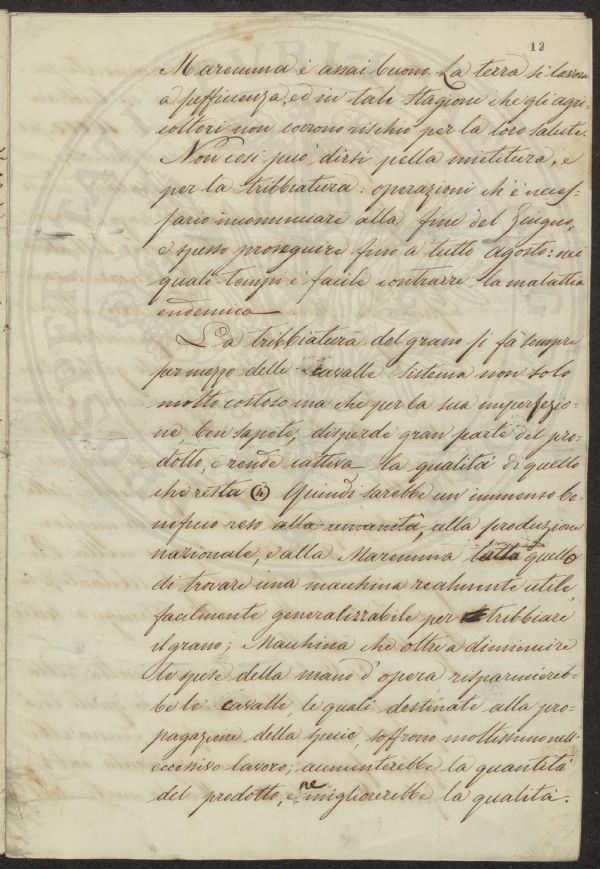 12
Maremma è assai buono. La terra si lavora
a sufficienza, ed in tale stagione che gli agri-
coltori non corrono rischio per la loro salute.
Non così può dirsi pella mietitura, e
per la tribbiatura: operazioni ch'è neces-
sario incominciare alla fine del Giugno,
e spesso proseguire fino a tutto agosto: nei
quali tempi è facile contrarre la malattia
endemica
La tribbiatura del grano si fà sempre
per mezzo delle cavalle: sistema non solo
molto costoso ma che per la sua imperfezio-
ne, ben sapete, disperde gran parte del pro-
dotto, e rende cattiva la qualità di quello
che resta (4) Quindi sarebbe un immenso be-
neficio reso alla umanità, alla produzione
nazionale, e alla Maremma tutta quello
di trovare una macchina realmente utile,
facilmente generalizzabile per tribbiare
il grano; Macchina che oltre a diminuire
le spese della mano d'opera risparmiereb-
be le cavalle, le quali destinate alla pro-
pagazione della specie, soffrono moltissimo nell'
eccessivo lavoro; aumenterebbe la quantità
del prodotto, e ne migliorerebbe la qualità.